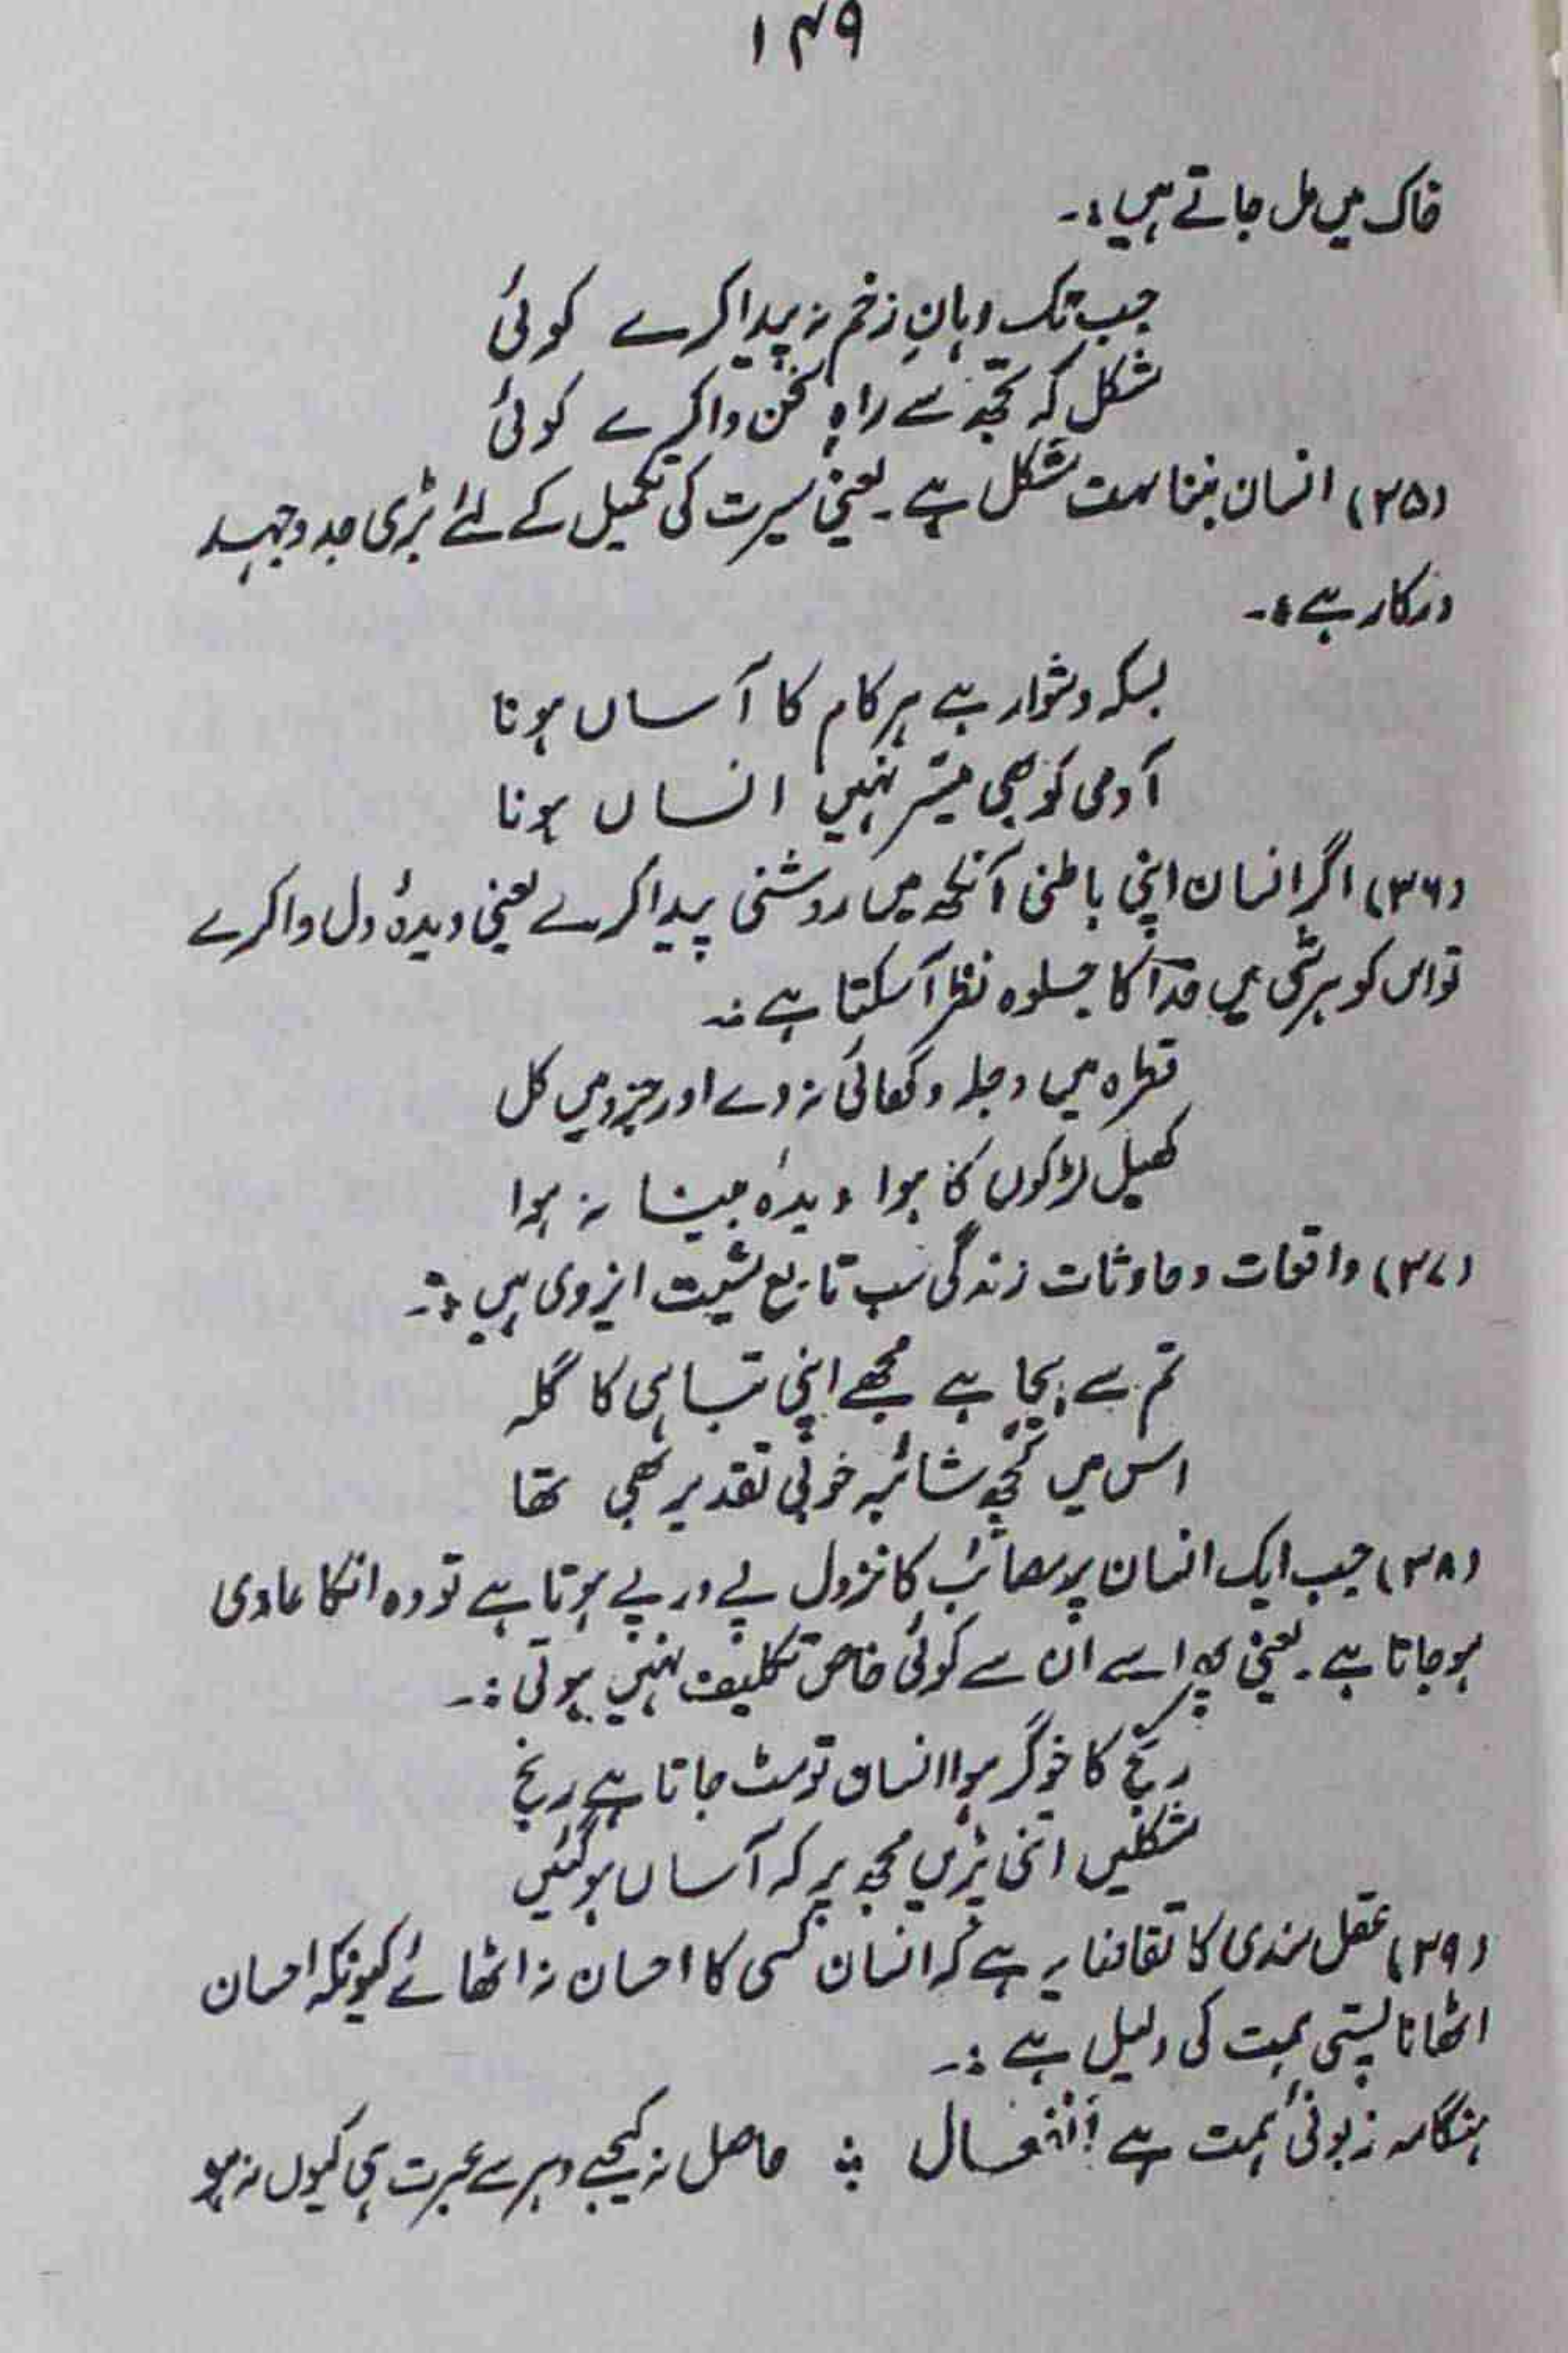 ۱۴۹
خاک میں مل جاتے ہیں :۔
جب تک دہانِ زخم نہ پیدا کرے کوئی
مشکل کہ تجھ سے راہِ سخن وا کرے کوئی
(۳۵) انسان بننا بہت مشکل ہے۔ یعنی سیرت کی تکمیل کے لئے بڑی جد وجہد
درکار ہے :۔
بسکہ دشوار ہے ہر کام کا آساں ہونا
آدمی کو بھی میسّر نہیں انساں ہونا
(۳۶) اگر انسان اپنی باطنی آنکھ میں روشنی پیدا کرے یعنی دیدۂ دل وا کرے
تو اس کو ہر شی میں خدا کا جلوہ نظر آسکتا ہے :۔
قطرہ میں دجلہ دکھائی نہ دے اور جزو میں کل
کھیل لڑکوں کا ہوا دیدۂ بینا نہ ہوا
(۳۷) واقعات و حادثات زندگی سب تابع مشیت ایزدی ہیں :۔
تم سے بیجا ہے مجھے اپنی تباہی کا گلہ
اس میں کچھ شائبہ خوبیٔ تقدیر بھی تھا
(۳۸) جب ایک انسان پر مصائب کا نزول پے در پے ہوتا ہے تو وہ انکا عادی
ہو جاتا ہے۔ یعنی پھر اسے ان سے کوئی خاص تکلیف نہیں ہوتی :۔
رنج کا خوگر ہوا انساں تو مٹ جاتا ہے رنج
مشکلیں اتنی پڑیں مجھ پر کہ آساں ہو گئیں
(۳۹) عقل مندی کا تقاضا یہ ہے کہ انسان کسی کا احسان نہ اٹھائے کیونکہ احسان
اٹھانا پستی ہمت کی دلیل ہے :۔
ہنگامہ زبونیٔ ہمت ہے اِنفعال ؞ حاصل نہ کیجے دہر سے عبرت ہی کیوں نہ ہو